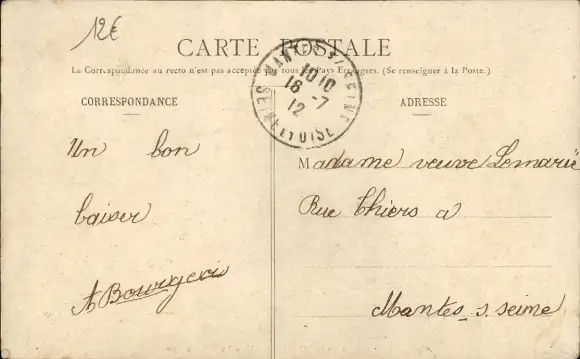 12€
CARTE POSTALE
La Correspondance au recto n'est pas acceptée par tous les Pays Etrangers. (Se renseigner à la Poste.)
CORRESPONDANCE
Un bon
baiser
A Bourgeois
ADRESSE
Madame veuve Lemarié
Rue Thiers a
Mantes s. seine
MANTES S/ SEINE
1010
16 -7
12
SEINE ET OISE